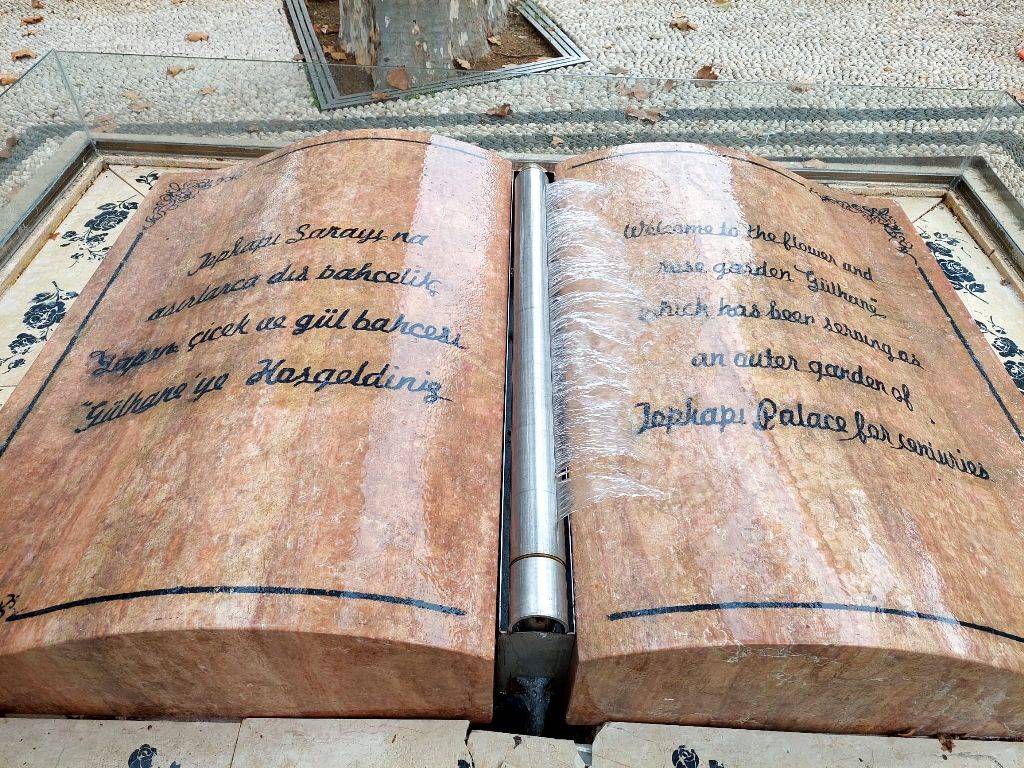 Topkapı Sarayı na
asırlarca dıs bahcelik
Yapan çicek ve gül bahcesi
"Gülhane'ye Hosgeldiniz
Welcome to the flower and
rose garden "Gülhane"
which has been serving as
an outer garden of
Topkapı Palace for centuries